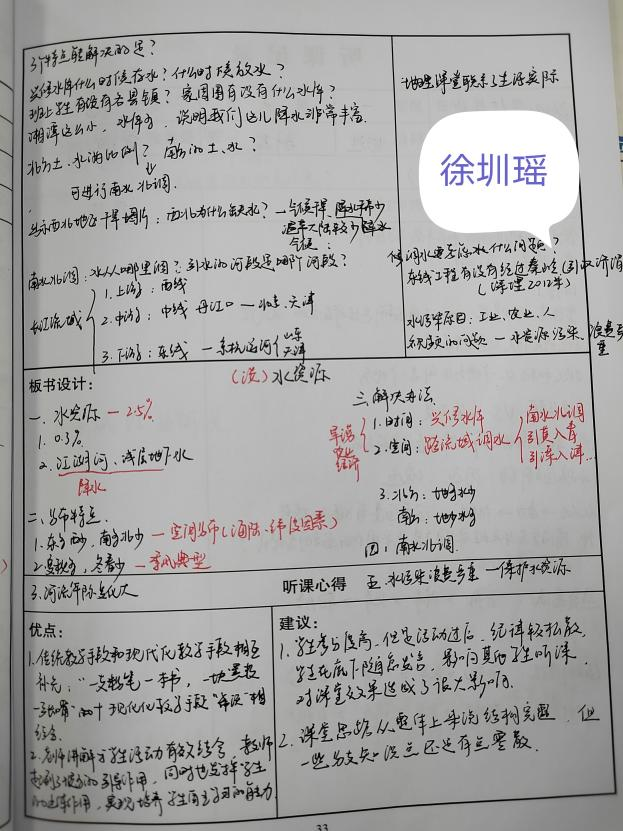 3个特点能解决的是？
兴修水库什么时候存水？什么时候放水？
班上学生有没有各县镇？家周围有没有什么水库？
湘潭这么小，水库多，说明我们这儿降水非常丰富.
北方土、水的比例？南方的土、水？
可进行南水北调.
西北为什么缺水？
气候干旱、降水稀少
南水北调：水从哪里调？引水的河段是哪个河段？
长江流域
1.上游：西线
2.中游：中线 丹江口—北京、天津
3.下游：东线
地理课堂联系了生活实际
徐圳瑶
东线工程有没有经过秦岭
水污染原因：工业、农业、人
水资源污染、浪费严重
板书设计：
(淡)水资源
一.水资源—2.5%
1. 0.3%
2.江湖河、浅层地下水
降水
二.分布特点.
1.东多西少，南多北少—空间分布(海陆、纬度因素)
2.夏秋多，冬春少—季风典型
3.河流年际变化大
三.解决办法.
1.时间：兴修水库
2.空间：跨流域调水
南水北调
引黄入青
引滦入津...
3.北方：地多水少
南方：地少水多
因：南水北调.
听课心得
五.水污染浪费严重—保护水资源
优点：
1.传统教学手段和现代化教学手段相互
补充："一支粉笔一本书，一块黑板
现代化教学手段 相
结合.
2.老师讲解与学生活动有效结合，教师
起到了很好的引导作用，同时也发挥学生
的主体作用，实现培养学生自主学习的能力.
建议：
1.学生参与度高，但是活动过后，纪律较松散，
学生在底下随意发言，影响其他学生听课，
对课堂效果造成了很大影响.
2.课堂思路从整体上来说结构完整，但
一些分支知识点还是有点零散.
33